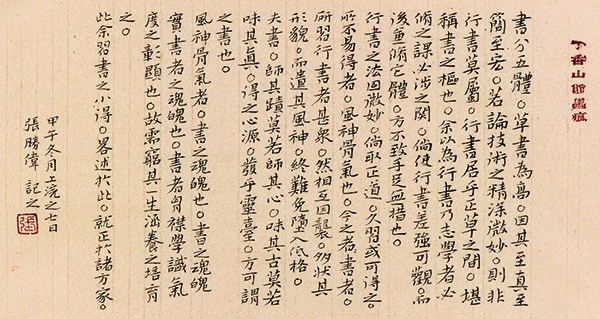 香山館
書分五體。草書為高。因其至真至
簡至宏。若論技術之精深微妙。則非
行書莫屬。行書居乎正草之間。堪
稱書之樞也。余以為行書乃志學者必
脩之課必涉之関。倘使行書差強可觀。而
後兼脩它體。方不致手足無措也。
行書之法因微妙。倘取正道。久習或可得之。
所不易得者。風神骨氣也。今之書者。
研習行書者甚衆。然相互因襲。多狀其
形貌。而遺其風神。終難免墮入低格。
夫書。師其蹟莫若師其心。味其古莫若
味其真。得之心源。發乎靈臺。方可謂
之書也。
風神骨氣者。書之魂魄也。書之魂魄
實書者之魂魄也。書者胷襟學識氣
度之彰顯也。故需窮其一生涵養之培育
之。
此余習書之小得。畧述於此。就正於諸方家。
甲午冬月上浣之七日
張勝偉 記之
張